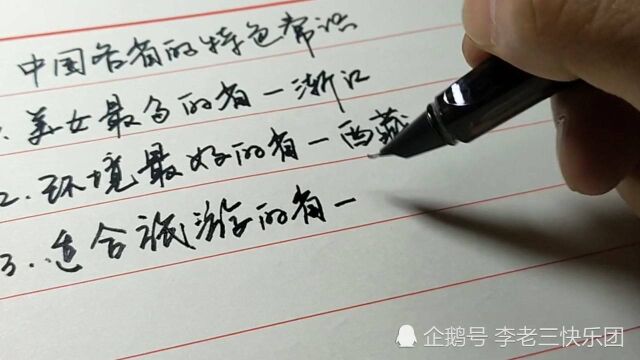 中国各省的特色常识
1.美女最多的省一浙江
2.环境最好的省一西藏
3.适合旅游的省一
企鹅号 李老三快乐团